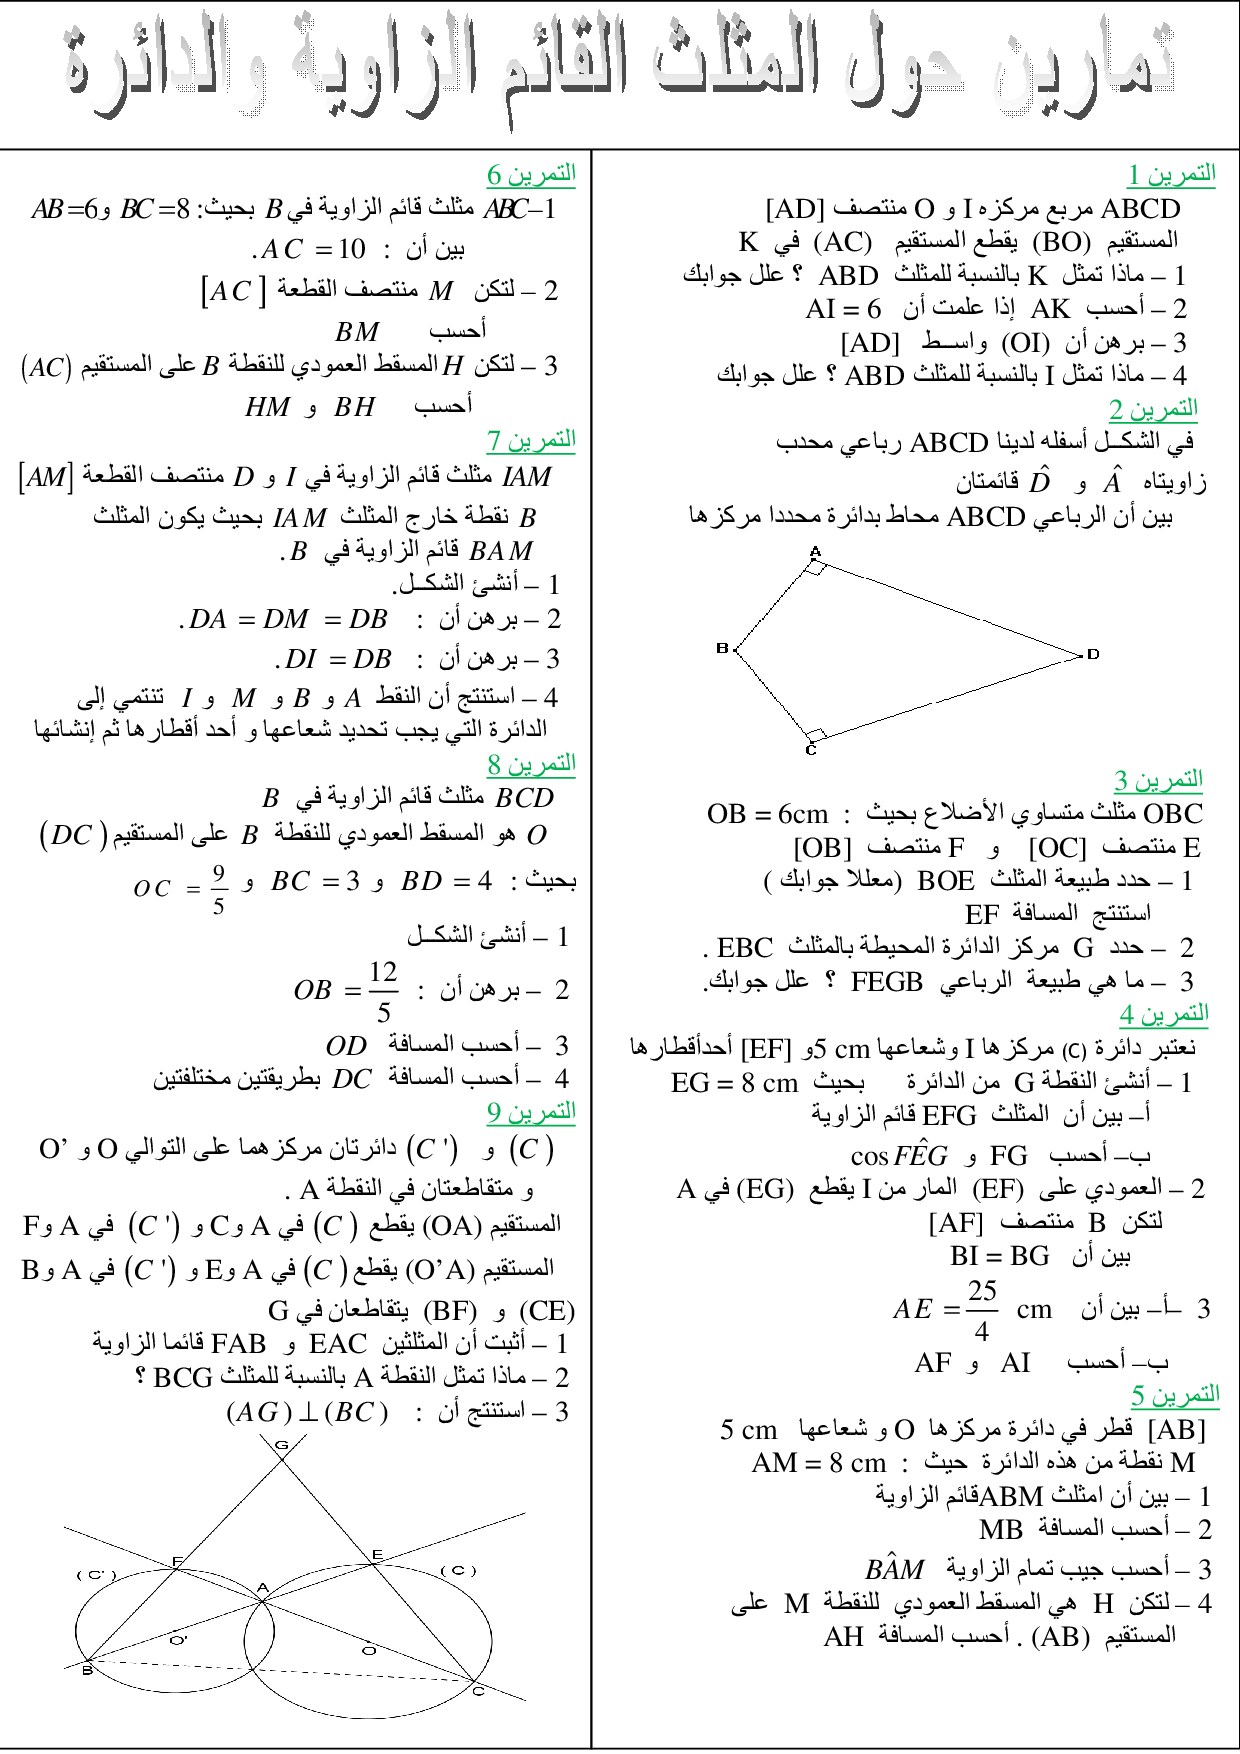 تمارين حول المثلث القائم الزاوية والدائرة
التمرين 1
ABCD مربع مركزه I و O منتصف [AD]
المستقيم (BO) يقطع المستقيم (AC) في K
1 – ماذا تمثل K بالنسبة للمثلث ABD ؟ علل جوابك
2 – أحسب AK إذا علمت أن AI = 6
3 – برهن أن (OI) واسـط [AD]
4 – ماذا تمثل I بالنسبة للمثلث ABD ؟ علل جوابك
التمرين 2
في الشكـل أسفله لدينا ABCD رباعي محدب
زاويتاه Â و D̂ قائمتان
بين أن الرباعي ABCD محاط بدائرة محددا مركزها
A
B
D
C
التمرين 3
OBC مثلث متساوي الأضلاع بحيث : OB = 6cm
E منتصف [OC] و F منتصف [OB]
1 – حدد طبيعة المثلث BOE (معللا جوابك )
استنتج المسافة EF
2 – حدد G مركز الدائرة المحيطة بالمثلث EBC .
3 – ما هي طبيعة الرباعي FEGB ؟ علل جوابك.
التمرين 4
نعتبر دائرة (C) مركزها I وشعاعها 5 cm و [EF] أحدأقطارها
1 – أنشئ النقطة G من الدائرة بحيث EG = 8 cm
أ– بين أن المثلث EFG قائم الزاوية
ب– أحسب FG و cos FÊG
2 – العمودي على (EF) المار من I يقطع (EG) في A
لتكن B منتصف [AF]
بين أن BI = BG
3 –أ– بين أن AE = 25/4 cm
ب– أحسب AI و AF
التمرين 5
[AB] قطر في دائرة مركزها O و شعاعها 5 cm
M نقطة من هذه الدائرة حيث : AM = 8 cm
1 – بين أن امثلث ABMقائم الزاوية
2 – أحسب المسافة MB
3 – أحسب جيب تمام الزاوية BÂM
4 – لتكن H هي المسقط العمودي للنقطة M على
المستقيم (AB) . أحسب المسافة AH
التمرين 6
1–ABC مثلث قائم الزاوية في B بحيث: BC=8 و AB=6
بين أن : AC = 10.
2 – لتكن M منتصف القطعة [AC]
أحسب BM
3 – لتكن H المسقط العمودي للنقطة B على المستقيم (AC)
أحسب BH و HM
التمرين 7
IAM مثلث قائم الزاوية في I و D منتصف القطعة [AM]
B نقطة خارج المثلث IAM بحيث يكون المثلث
BAM قائم الزاوية في B.
1 – أنشئ الشكـل.
2 – برهن أن : DA = DM = DB.
3 – برهن أن : DI = DB.
4 – استنتج أن النقط A و B و M و I تنتمي إلى
الدائرة التي يجب تحديد شعاعها و أحد أقطارها ثم إنشائها
التمرين 8
BCD مثلث قائم الزاوية في B
O هو المسقط العمودي للنقطة B على المستقيم (DC)
بحيث : BD = 4 و BC = 3 و OC = 9/5
1 – أنشئ الشكـل
2 – برهن أن : OB = 12/5
3 – أحسب المسافة OD
4 – أحسب المسافة DC بطريقتين مختلفتين
التمرين 9
(C) و (C') دائرتان مركزهما على التوالي O و O’
و متقاطعتان في النقطة A .
المستقيم (OA) يقطع (C) في A وC و (C') في A وF
المستقيم (O’A) يقطع (C) في A وE و (C') في A وB
(CE) و (BF) يتقاطعان في G
1 – أثبت أن المثلثين EAC و FAB قائما الزاوية
2 – ماذا تمثل النقطة A بالنسبة للمثلث BCG ؟
3 – استنتج أن : (AG)⊥(BC)
G
F
E
(C')
(C)
A
O'
O
B
C